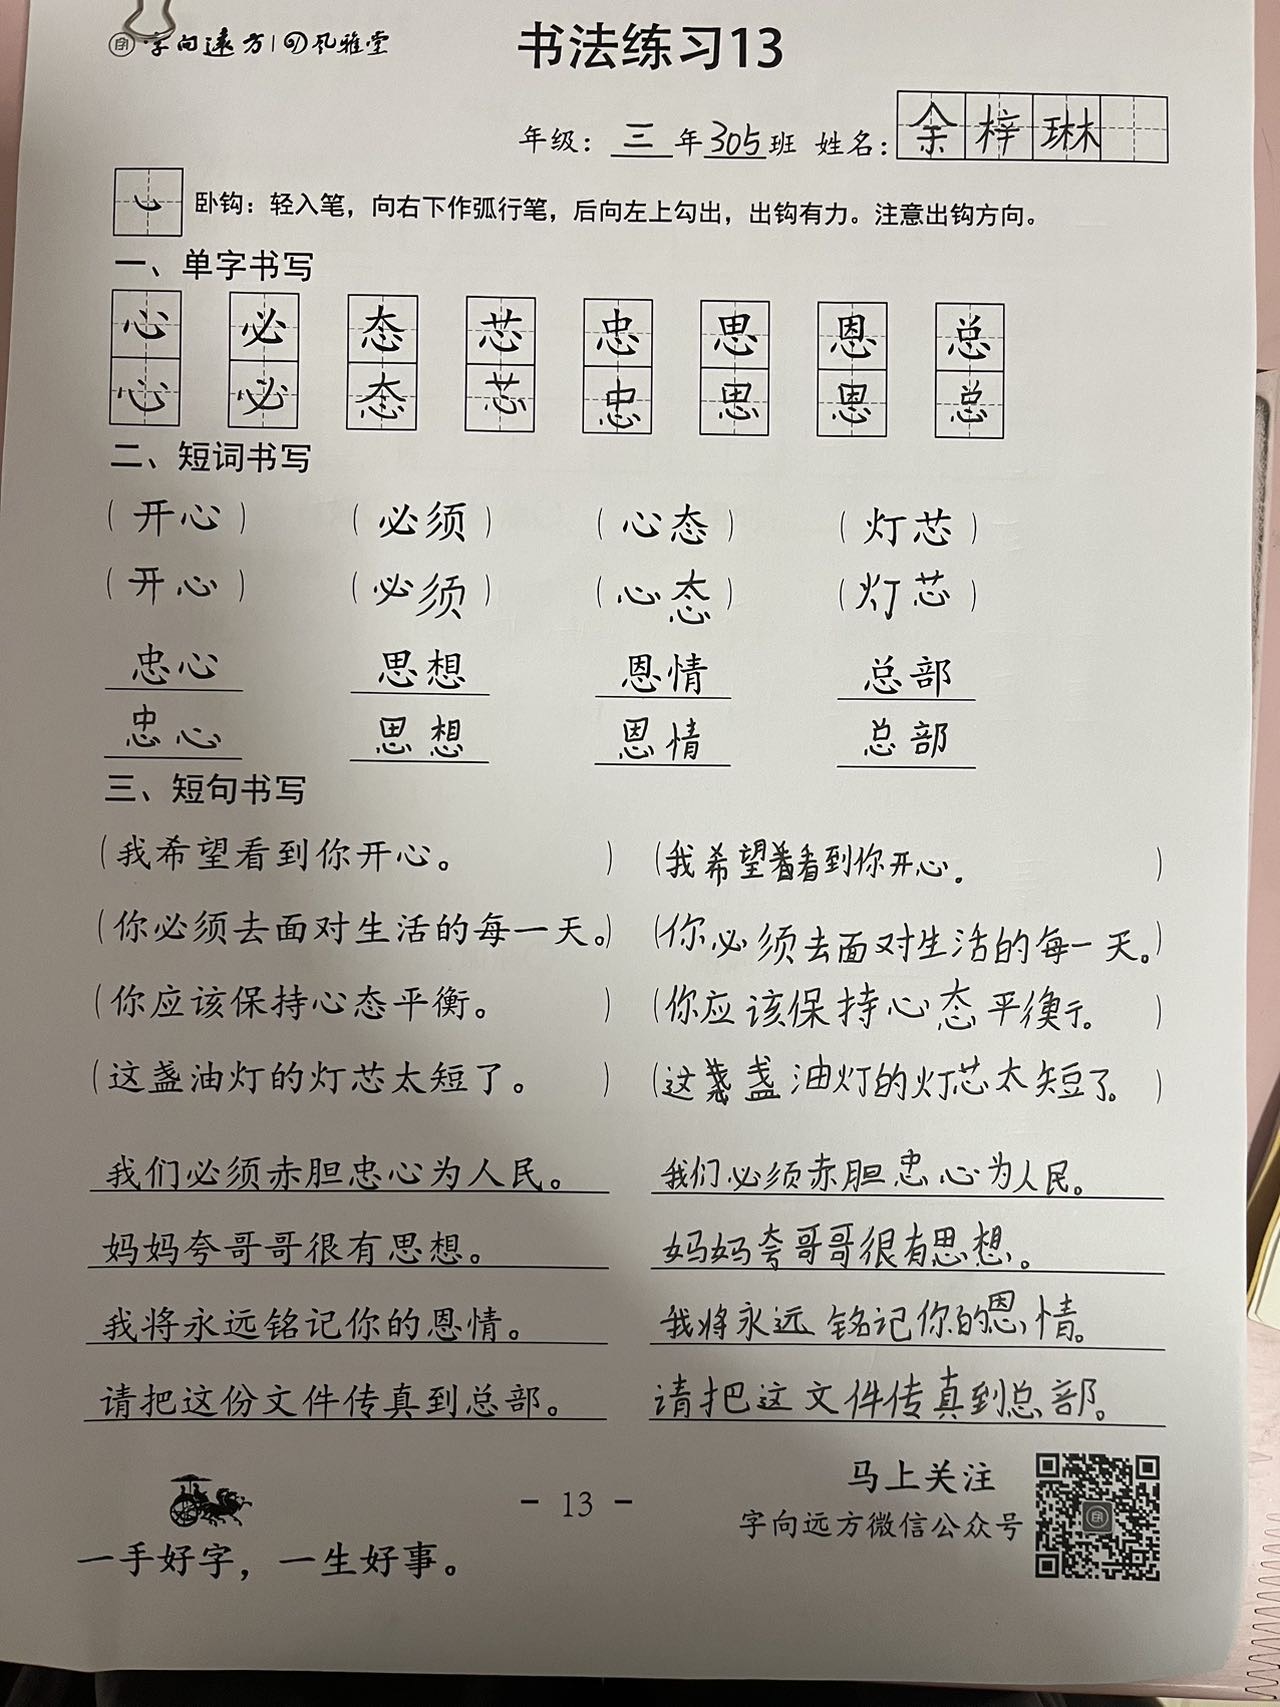 字向远方 风雅堂
书法练习13
年级：三年305班 姓名：余梓琳
卧钩：轻入笔，向右下作弧行笔，后向左上勾出，出钩有力。注意出钩方向。
一、单字书写
心 必 态 芯 忠 思 恩 总
心 必 态 芯 忠 思 思 总
二、短词书写
（开心） （必须） （心态） （灯芯）
（开心） （必须） （心态） （灯芯）
忠心 思想 恩情 总部
忠心 思想 恩情 总部
三、短句书写
（我希望看到你开心。 ） （我希望看到你开心。 ）
（你必须去面对生活的每一天。） （你必须去面对生活的每一天。）
（你应该保持心态平衡。 ） （你应该保持心态平衡。 ）
（这盏油灯的灯芯太短了。 ） （这盏油灯的灯芯太短了。 ）
我们必须赤胆忠心为人民。 我们必须赤胆忠心为人民。
妈妈夸哥哥很有思想。 妈妈夸哥哥很有思想。
我将永远铭记你的恩情。 我将永远铭记你的恩情。
请把这份文件传真到总部。 请把这文件传真到总部。
马上关注
- 13 -
字向远方微信公众号
一手好字，一生好事。